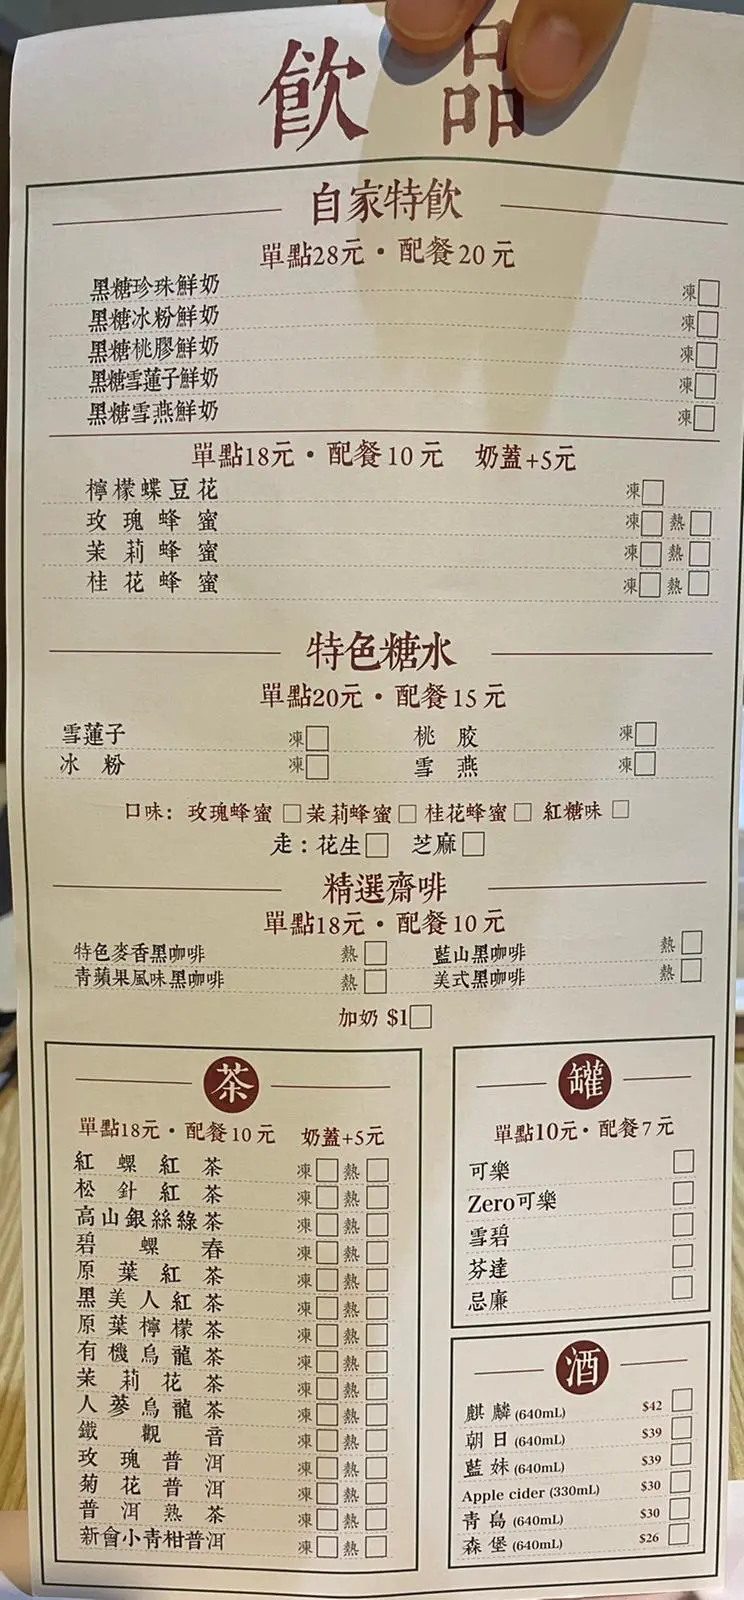 飲品
自家特飲
單點28元・配餐20元
黑糖珍珠鮮奶 凍
黑糖冰粉鮮奶 凍
黑糖桃膠鮮奶 凍
黑糖雪蓮子鮮奶 凍
黑糖雪燕鮮奶 凍
單點18元・配餐10元 奶蓋+5元
檸檬蝶豆花 凍
玫瑰蜂蜜 凍 熱
茉莉蜂蜜 凍 熱
桂花蜂蜜 凍 熱
特色糖水
單點20元・配餐15元
雪蓮子 凍 桃胶 凍
冰粉 凍 雪燕 凍
口味：玫瑰蜂蜜 茉莉蜂蜜 桂花蜂蜜 紅糖味
走：花生 芝麻
精選齋啡
單點18元・配餐10元
特色麥香黑咖啡 熱 藍山黑咖啡 熱
青蘋果風味黑咖啡 熱 美式黑咖啡 熱
加奶 $1
茶
單點18元・配餐10元 奶蓋+5元
紅螺紅茶 凍 熱
松針紅茶 凍 熱
高山銀絲綠茶 凍 熱
碧螺春 凍 熱
原葉紅茶 凍 熱
黑美人紅茶 凍 熱
原葉檸檬茶 凍 熱
有機烏龍茶 凍 熱
茉莉花茶 凍 熱
人蔘烏龍茶 凍 熱
鐵觀音 凍 熱
玫瑰普洱 凍 熱
菊花普洱 凍 熱
普洱熟茶 凍 熱
新會小青柑普洱 凍 熱
罐
單點10元・配餐7元
可樂
Zero可樂
雪碧
芬達
忌廉
酒
麒麟 (640mL) $42
朝日 (640mL) $39
藍妹 (640mL) $39
Apple cider (330mL) $30
青島 (640mL) $30
森堡 (640mL) $26